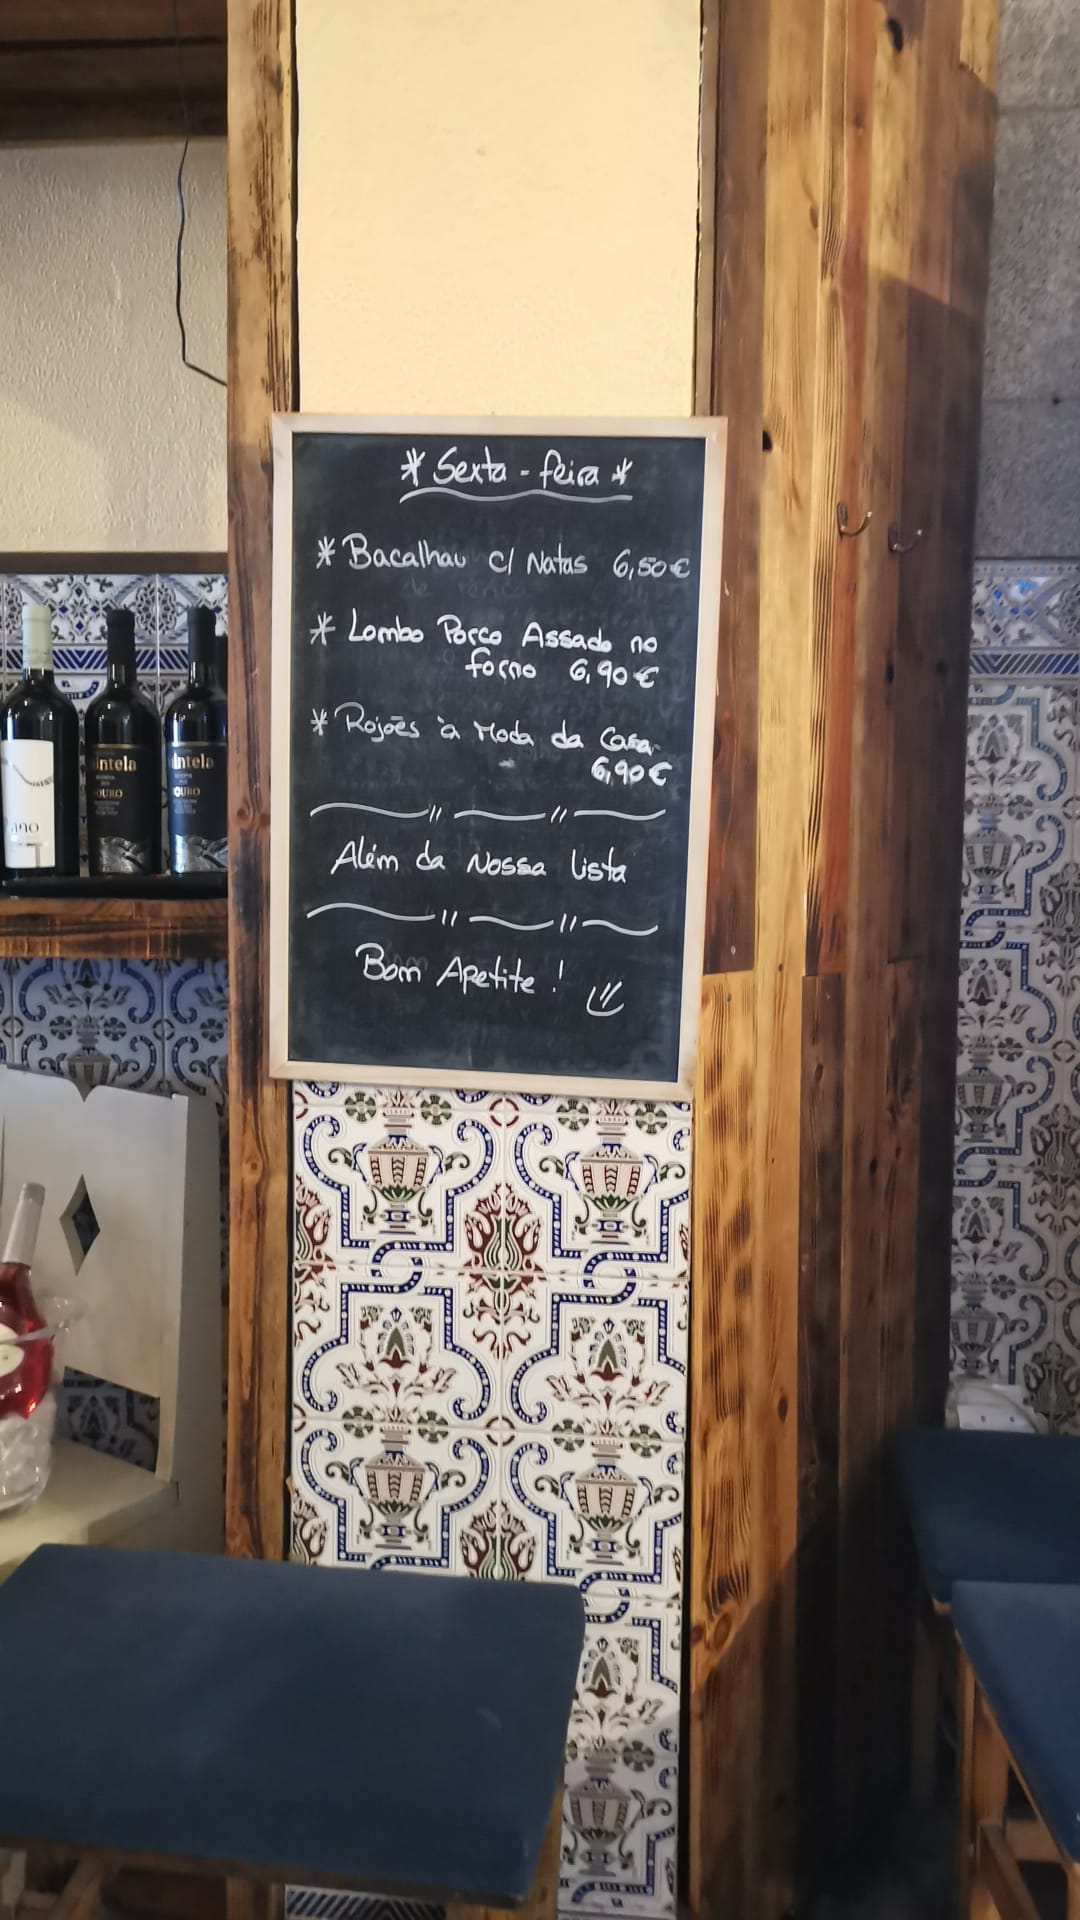 * Sexta - feira *
* Bacalhau c/ Natas 6,50€
* Lombo Porco Assado no
forno 6,90€
* Rojões à Moda da Casa
6,90€
Além da Nossa lista
Bom Apetite !
uintela
DOURO
uintela
DOURO